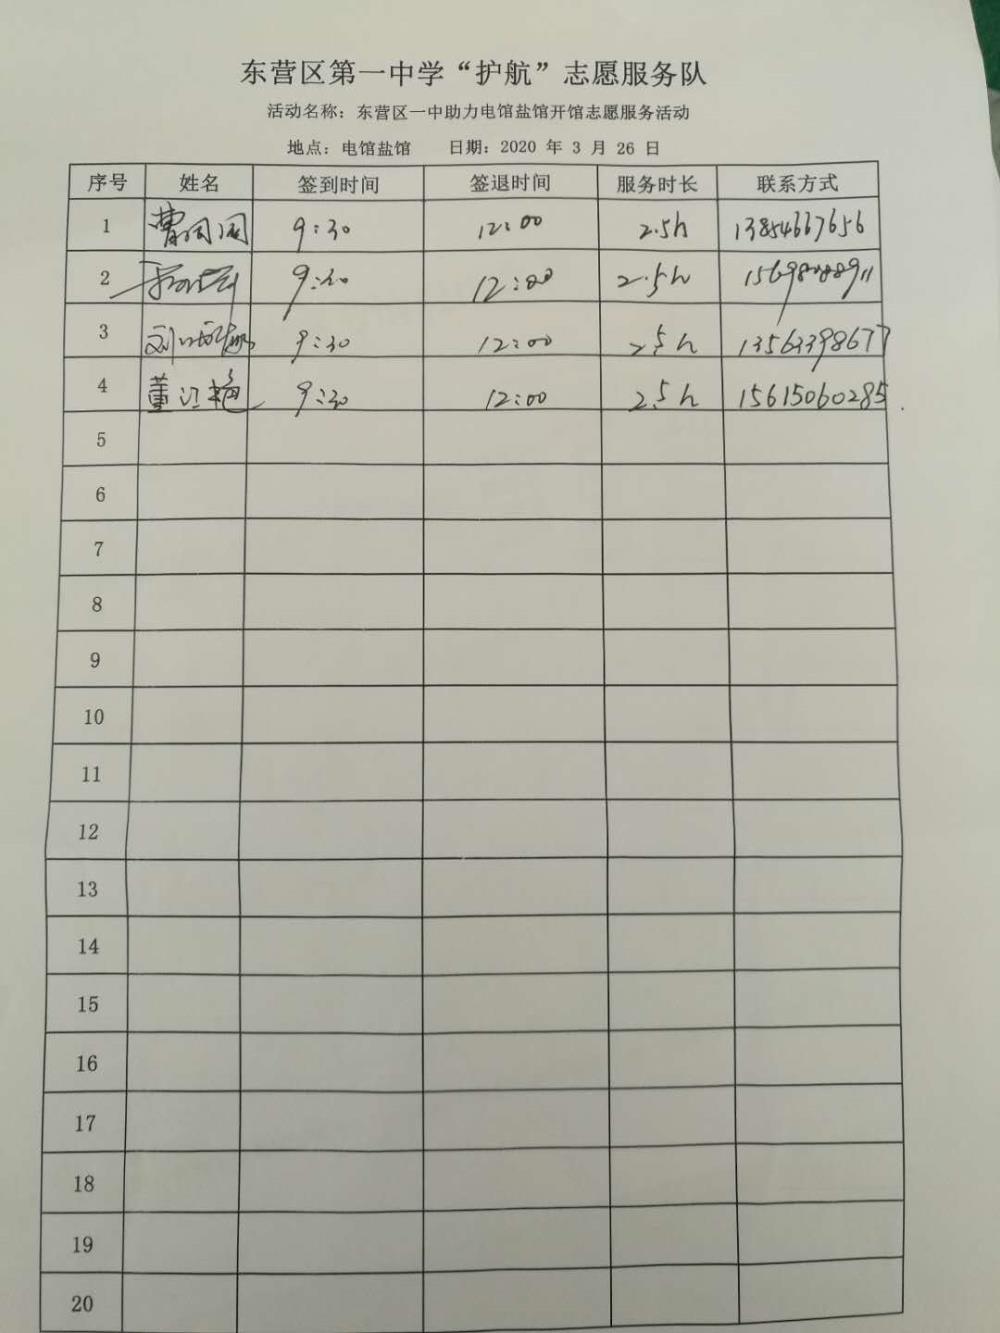 东营区第一中学“护航”志愿服务队
活动名称：东营区一中助力电馆盐馆开馆志愿服务活动
地点：电馆盐馆 日期：2020 年 3 月 26 日
序号 姓名 签到时间 签退时间 服务时长 联系方式
1 曹 9:30 12:00 2.5h 13854667656
2 9:30 12:00 2.5h
3 刘 9:30 12:00 2.5h 13563398677
4 董江艳 9:30 12:00 2.5h 15615060285
5
6
7
8
9
10
11
12
13
14
15
16
17
18
19
20